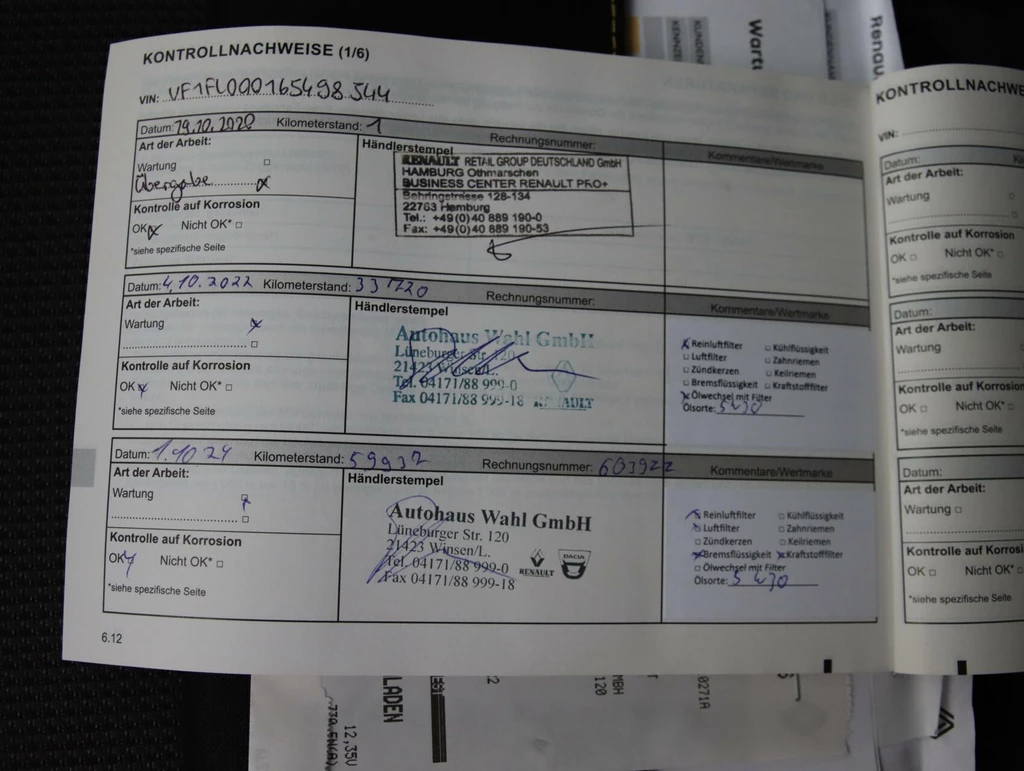 KONTROLLNACHWEISE (1/6)
VIN: VF1FL000165498544
Datum: 29.10.2020 Kilometerstand: 1 Rechnungsnummer:
Art der Arbeit:
Wartung
Übergabe
Kontrolle auf Korrosion
OK Nicht OK*
*siehe spezifische Seite
Händlerstempel
RENAULT RETAIL GROUP DEUTSCHLAND GmbH
HAMBURG Othmarschen
BUSINESS CENTER RENAULT PRO+
Behringstrasse 128-134
22763 Hamburg
Tel.: +49(0)40 889 190-0
Fax: +49(0)40 889 190-53
Kommentare/Wertmarke
Datum: 4.10.2022 Kilometerstand: Rechnungsnummer:
Art der Arbeit:
Wartung
Kontrolle auf Korrosion
OK Nicht OK*
*siehe spezifische Seite
Händlerstempel
Autohaus Wahl GmbH
Lüneburger Str. 120
21423 Winsen/L.
Tel. 04171/88 999-0
Fax 04171/88 999-18 RENAULT
Kommentare/Wertmarke
Reinluftfilter Kühlflüssigkeit
Luftfilter Zahnriemen
Zündkerzen Keilriemen
Bremsflüssigkeit Kraftstofffilter
Ölwechsel mit Filter
Ölsorte: 5W30
Datum: 1.10.24 Kilometerstand: 59937 Rechnungsnummer: 603922
Art der Arbeit:
Wartung
Kontrolle auf Korrosion
OK Nicht OK*
*siehe spezifische Seite
Händlerstempel
Autohaus Wahl GmbH
Lüneburger Str. 120
21423 Winsen/L.
Tel. 04171/88 999-0
Fax 04171/88 999-18
RENAULT
DACIA
Kommentare/Wertmarke
Reinluftfilter Kühlflüssigkeit
Luftfilter Zahnriemen
Zündkerzen Keilriemen
Bremsflüssigkeit Kraftstofffilter
Ölwechsel mit Filter
Ölsorte: 5W30
6.12
KONTROLLNACHWE
VIN:
Datum:
Art der Arbeit:
Wartung
Kontrolle auf Korrosion
OK Nicht OK*
*siehe spezifische Seite
Datum:
Art der Arbeit:
Wartung
Kontrolle auf Korrosion
OK Nicht OK*
*siehe spezifische Seite
Datum:
Art der Arbeit:
Wartung
Kontrolle auf Korrosi
OK Nicht OK*
*siehe spezifische Seite
Wart
Renau
LADEN
12,35V
0271A
120